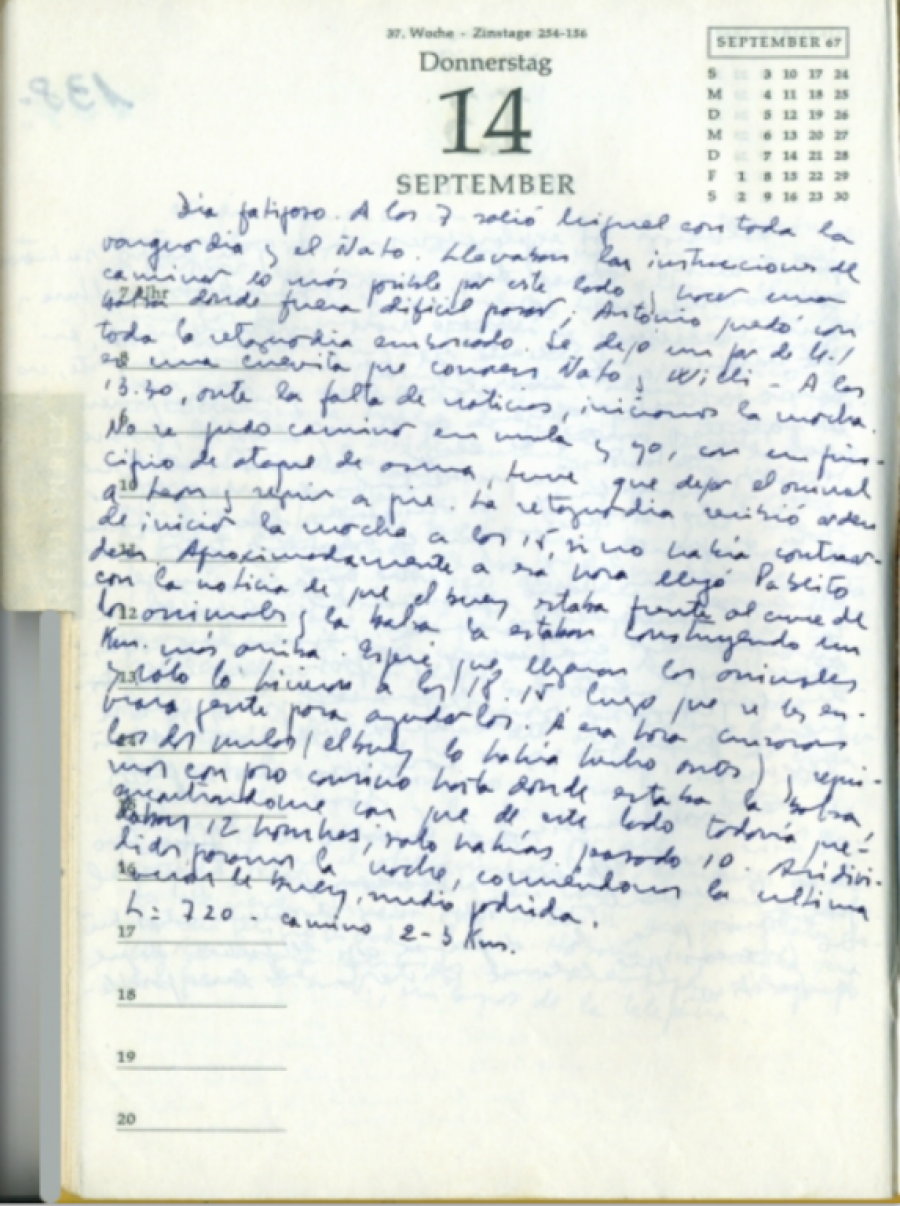 37. Woche - Zinstage 254-156
Donnerstag
14
SEPTEMBER
SEPTEMBER 67
S 3 10 17 24
M 4 11 18 25
D 5 12 19 26
M 6 13 20 27
D 7 14 21 28
F 1 8 15 22 29
S 2 9 16 23 30
138.
Día fatigoso. A las 7 salió Miguel con toda la
vanguardia y el Ñato. Llevaban las instrucciones de
caminar lo más posible por este lado y hacer una
7 Uhr
balsa donde fuera difícil pasar; Antonio quedó con
toda la retaguardia emboscado. Se dejó un par de M-1
8
en una cuevita que conocen Ñato y Willi - A las
13.30, ante la falta de noticias, iniciamos la marcha.
9
No se pudo caminar en mula y yo, con un prin-
cipio de ataque de asma, tuve que dejar el animal
10
a León y seguir a pie. La retaguardia recibió orden
de iniciar la marcha a las 15, si no había contraor-
11
den. Aproximadamente a esa hora llegó Pablito
con la noticia de que el buey estaba frente al cruce de
12
los animales y la balsa la estaban construyendo un
Km. más arriba. Esperé que llegaran los animales
13
y sólo lo hicieron a las 18.15 luego que se les en-
viara gente para ayudarlos. A esa hora cruzaron
los dos mulos (el buey lo había hecho antes) y segui-
mos con paso cansino hasta donde estaba la balsa,
encontrándome con que de este lado todavía que-
daban 12 hombres; solo habían pasado 10. Así divi-
didos pasamos la noche, comiéndonos la ultima
16
de buey, medio podrida.
h= 720 - camino 2-3 Km.
17
18
19
20